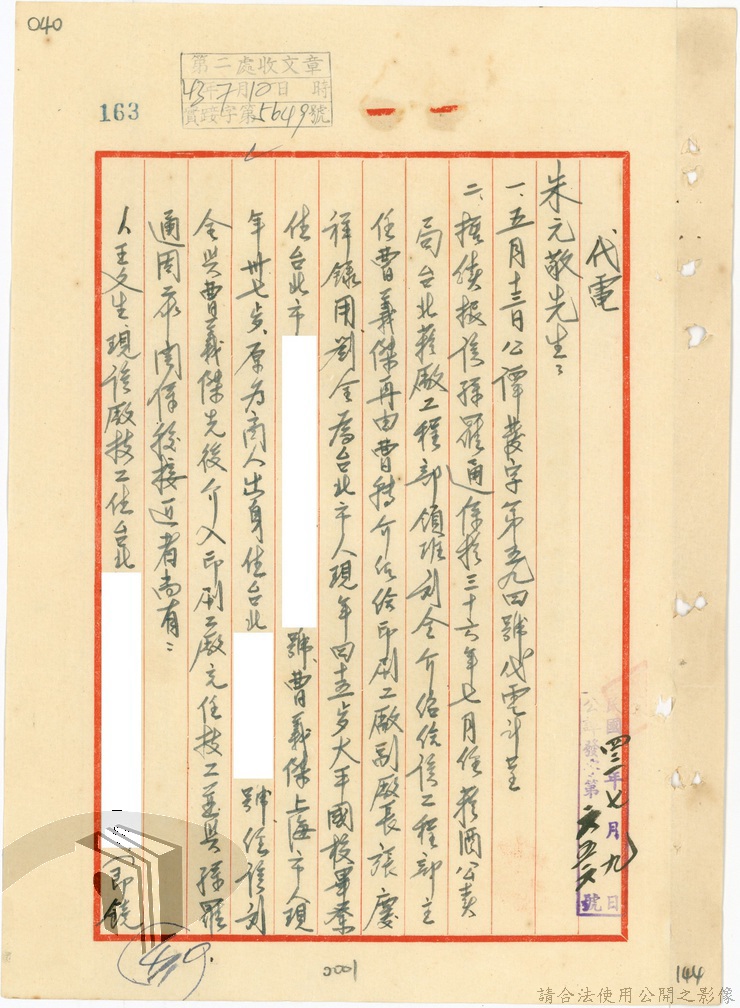 040
第二處收文章
43年7月10日 時
字第5649號
163
代電
朱元敬先生：
一、五月十三日公譚發字第五九四號代電計呈
二、據續報該孫羅通係於三十六年七月任菸酒公賣
局台北菸廠工程部領班劉全介紹給該工程部主
任曹義傑再由曹轉介紹給印刷工廠副廠長張慶
祥錄用劉全為台北市人現年四十五歲太平國校畢業
住台北市 號、曹義傑上海市人現
年卅七歲、原為商人出身住台北 號住該劉
全與曹義傑先後介入印刷工廠充任技工並與孫羅
通周 關係較接近者尚有：
人王文生現該廠技工住台北
民國四三年七月九日
公譚發字第六五六號
0001
144
請合法使用公開之影像